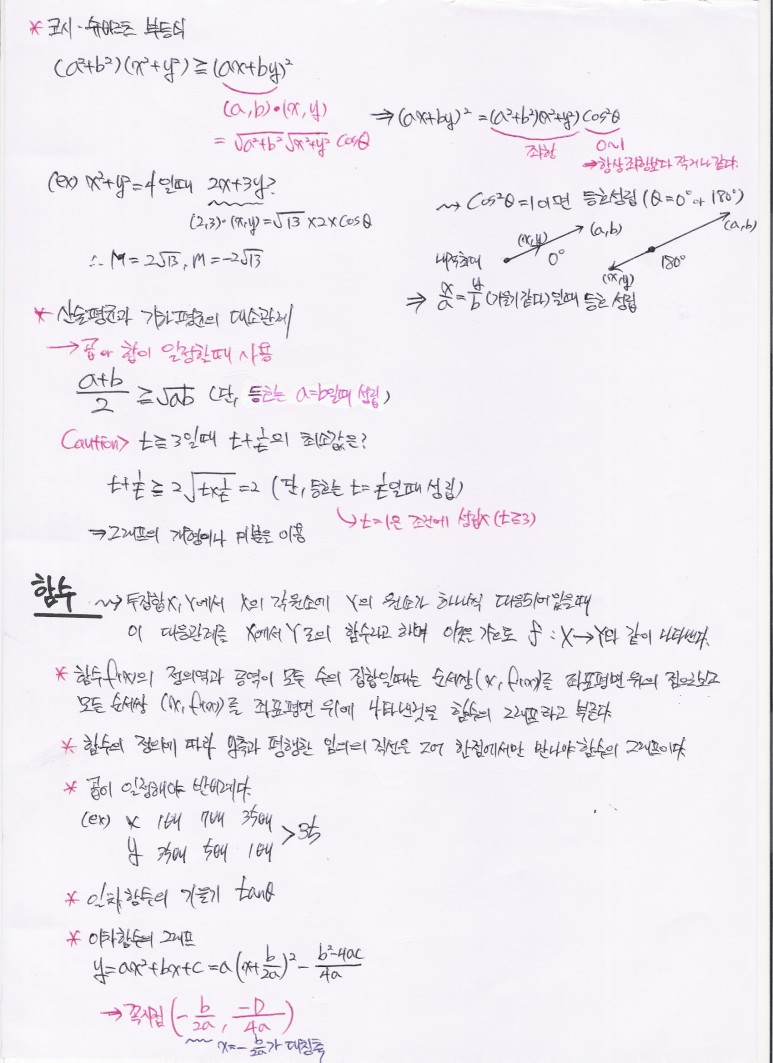 * 코시-슈바르츠 부등식
(a²+b²)(x²+y²) ≧ (ax+by)²
(a,b)•(x,y)
= √a²+b² √x²+y² cosθ
⇒ (ax+by)² = (a²+b²)(x²+y²) cos²θ
좌항
0~1
→ 항상 좌항보다 작거나 같다.
(ex) x²+y²=4 일때 2x+3y?
(2,3)•(x,y)=√13 × 2 × cosθ
∴ M = 2√13, m = -2√13
~> cos²θ=1이면 등호성립 (θ=0° or 180°)
내적최대
(x,y)
(a,b)
0°
(a,b)
180°
(x,y)
⇒ x/a = y/b (기울기 같다) 일때 등호 성립
* 산술평균과 기하평균의 대소관계
→ 곱이나 합이 일정할때 사용
a+b/2 ≧ √ab (단, 등호는 a=b일때 성립)
Caution> t≧3일때 t+1/t의 최소값은?
t+1/t ≧ 2√t×1/t = 2 (단, 등호는 t=1/t일때 성립)
↳ t=1은 조건에 성립x (t≧3)
→ 그래프의 개형이나 미분을 이용
함수 ~> 두집합 X, Y에서 X의 각원소에 Y의 원소가 하나씩 대응되어 있을때
이 대응관계를 X에서 Y로의 함수라고 하며 이것을 기호로 f : X→Y와 같이 나타낸다.
* 함수 f(x)의 정의역과 공역이 모든 수의 집합일때는 순서쌍 (x, f(x))를 좌표평면 위의 점으로보고
모든 순서쌍 (x, f(x))를 좌표평면 위에 나타낸것을 함수의 그래프라고 부른다.
* 함수의 정의에 따라 y축과 평행한 임의의 직선을 그어 한점에서만 만나야 함수의 그래프이다.
* 곱이 일정해야 반비례다.
(ex) x 1배 7배 35배
y 35배 5배 1배
> 35
* 일차함수의 기울기 tanθ
* 이차함수의 그래프
y=ax²+bx+c = a(x+b/2a)² - b²-4ac/4a
→ 꼭지점 (-b/2a, -D/4a)
x=-b/2a가 대칭축